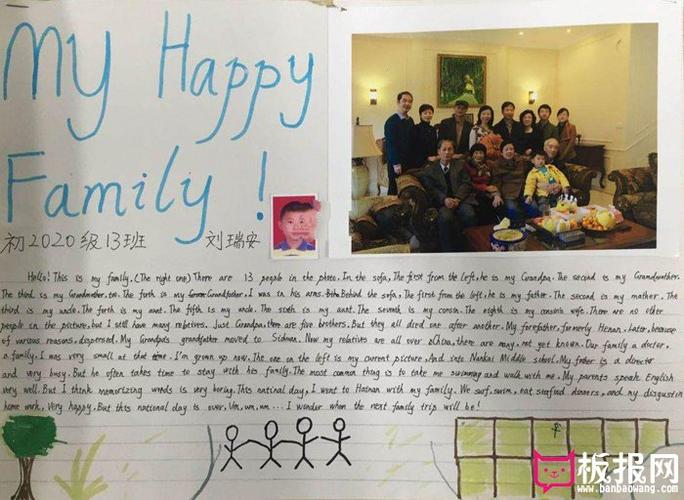 My Happy
Family!
初2020级13班 刘瑞安
Hello! This is my family. (The right one) There are 13 people in the photo. In the sofa, The first from the left, he is my Grandpa. The second is my Grandmather.
The third is my Grandmother, too. The forth is my Grandfather, I was in his arms. Behind the sofa, The first from the left, he is my father. The second is my mather. The
third is my uncle. The forth is my aunt. The fifth is my uncle. The sixth is my aunt. The seventh is my consin. The eighth is my consin's wife. There are no other
people in the picture, but I still have many relatives. Just Grandpa, there are five brothers. But they all dred one after another. My forefather, formerly Henan, later, because
of various reasons, dispersed. My Grandpa's grandfather moved to Sichuan. Now my relatives are all over China, there are many, not yet known. Our family a doctor,
a family. I was very small at that time. I'm grown up now. The one on the left is my current picture. And into Nankai Middle school. My father is a director
and very busy. But he often takes time to stay with his family. The most common thing is to take me swimming and walk with me. My parents speak English
very well. But I think memorizing words is very boring. This national day, I went to Hainan with my family. We surf, swim, eat seafood dinners, and my disgustin
home work, Very happy. But this national day is over. Um, um, um ... I wonder when the next family trip will be!
板报网
www.banbaowang.com